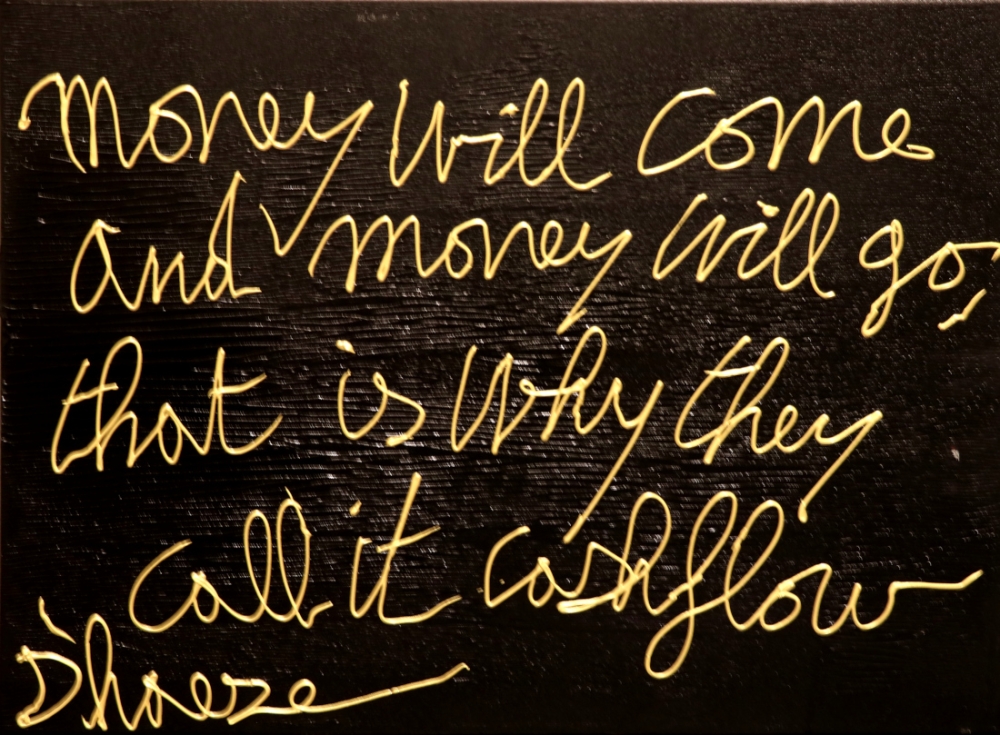 Money will come
and money will go,
that is why they
call it cashflow